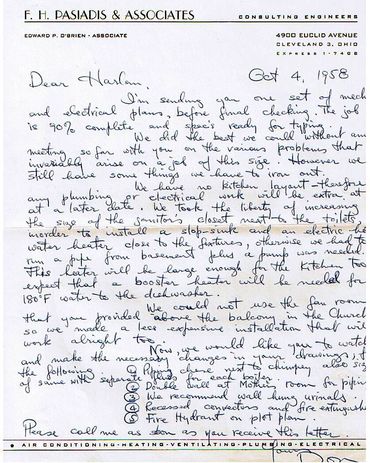 F. H. PASIADIS & ASSOCIATES
CONSULTING ENGINEERS
EDWARD P. O'BRIEN - ASSOCIATE
4900 EUCLID AVENUE
CLEVELAND 3, OHIO
EXPRESS 1-7408
Oct 4, 1958
Dear Harlan,
I'm sending you one set of mech
and electrical plans, before final checking. The job
is 90% complete and specs ready for typing.
We did the best we could without any
meeting so far with you on the various problems that
invariably arise on a job of this size. However we
still have some things we have to iron out.
We have no kitchen layout - therefore
any plumbing or electrical work will be extra at
at a later date. We took the liberty of increasing
the size of the janitor's closet next to the toilets
in order to install a slop-sink and an electric hot
water heater close to the fixtures, otherwise we had to
run a pipe from basement plus a pump was needed.
This heater will be large enough for the kitchen too
expect that a booster heater will be needed for
180°F water to the dishwasher.
We could not use the fan room
that you provided above the balcony in the Church
so we made a less expensive installation that will
work alright too.
Now, we would like you to watch
and make the necessary changes in your drawings, for
the following ① Pipe chase next to chimney also size
of same with separate flues for each boiler.
② Double wall at Mothers room for piping
③ We recommend wall hung urinals.
④ Recessed convectors and fire extinguishers
⑤ Fire Hydrant on plot plan.
Please call me as soon as you receive this letter.
Yours
Don
AIR CONDITIONING • HEATING • VENTILATING • PLUMBING • ELECTRICAL